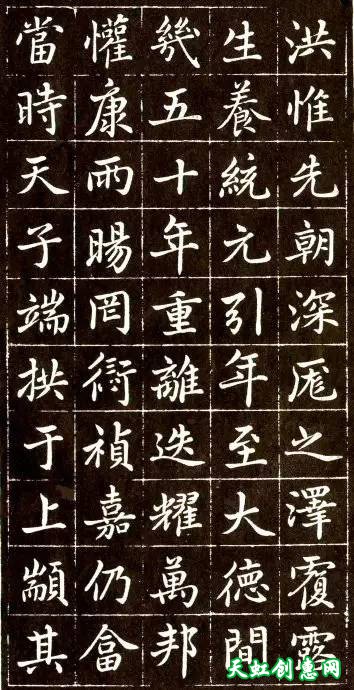 洪惟先朝深厖之澤覆露
生養統元引年至大德間
幾五十年重離迭耀萬邦
懽康雨暘罔禎嘉仍畣
當時天子端拱于上顓其
天虹创意网